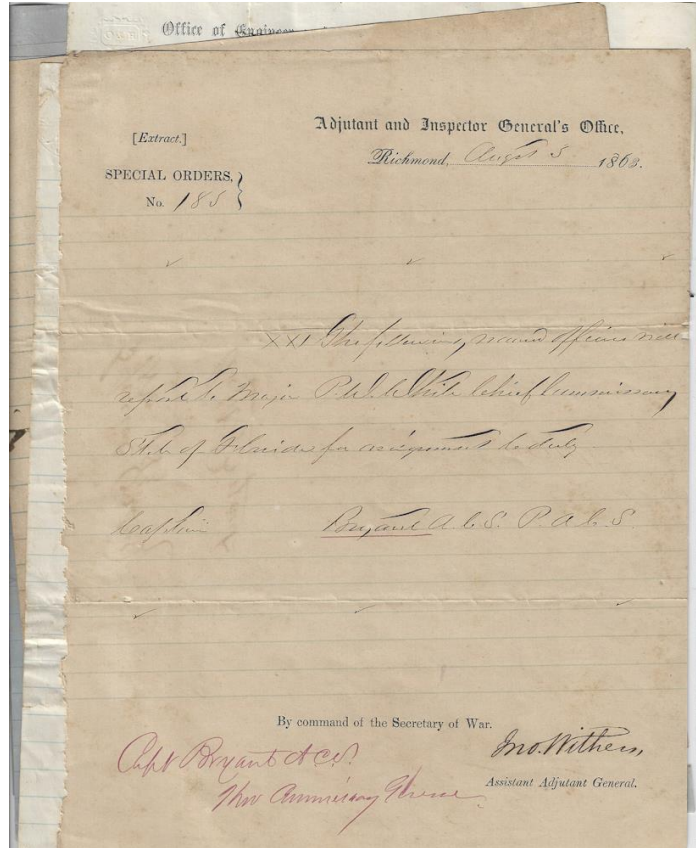 Office of Engineer
Adjutant and Inspector General's Office,
[Extract.]
Richmond, Augst 5 1863.
SPECIAL ORDERS, }
No. 185
XXI The following named officer will
report to Major P. W. White Chief Commissary
State of Florida for assignment to duty
Captain Bryant A. C. S. P. A. C. S.
By command of the Secretary of War.
Jno. Withers,
Assistant Adjutant General.
Capt Bryant A C S
Commissary